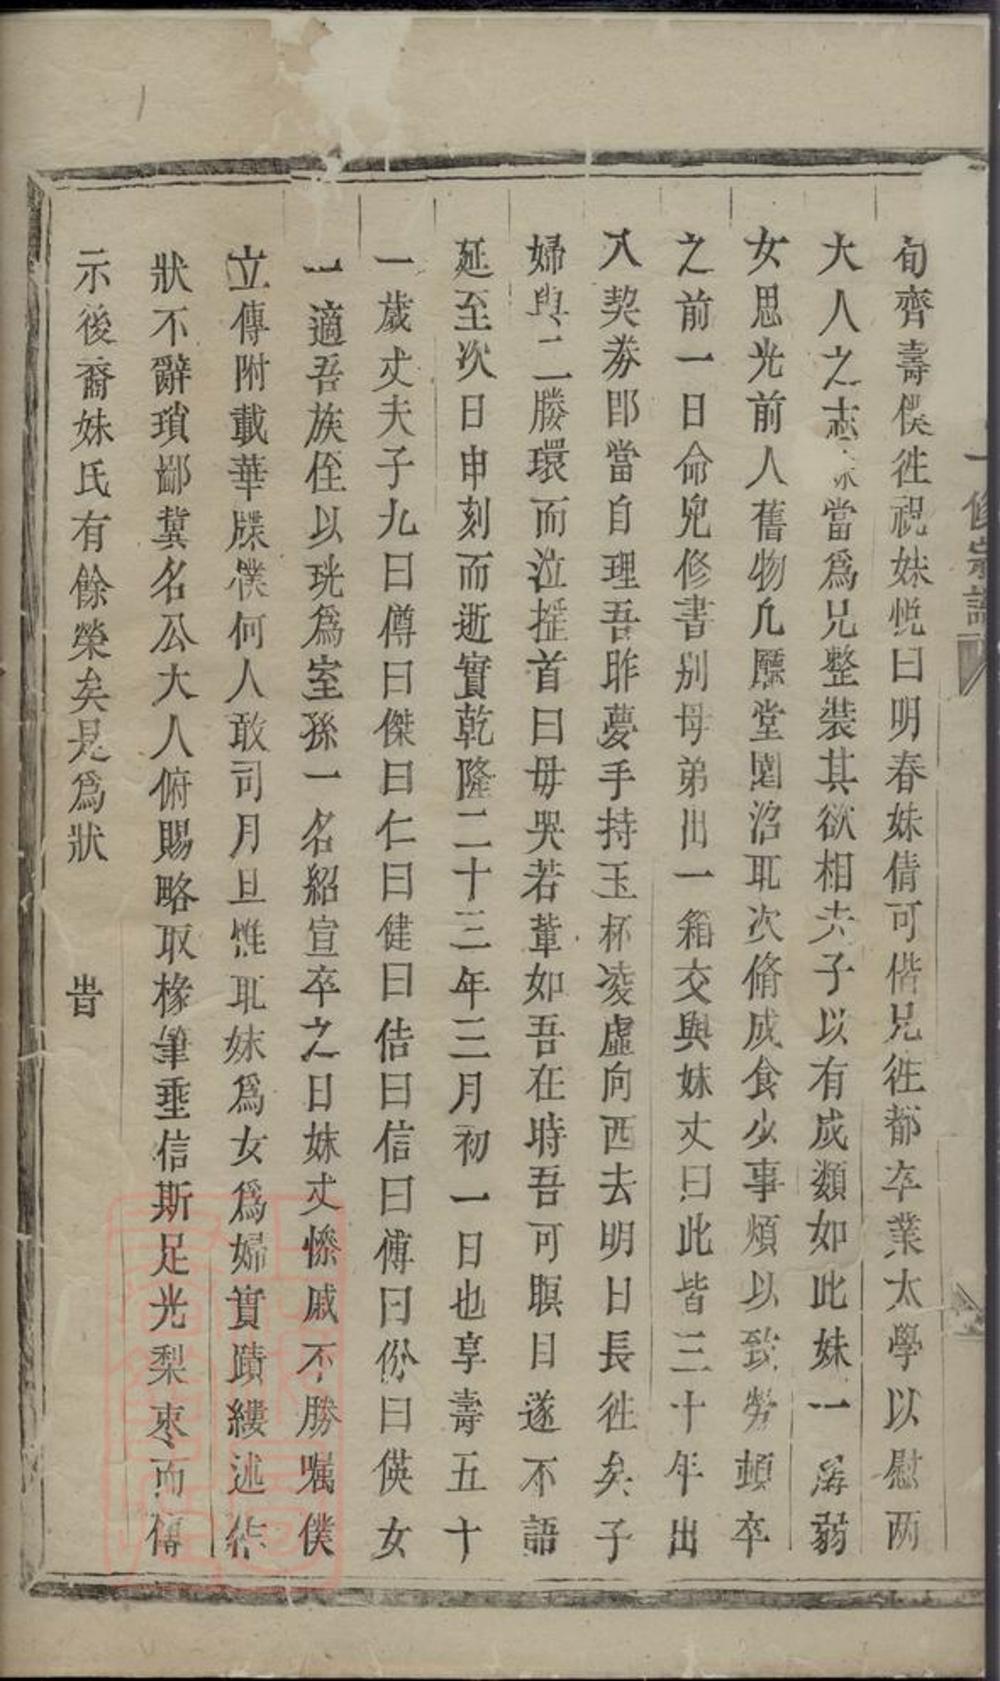 旬齊壽僕徃祝妹悅曰明春妹倩可偕兄徃都卒業太學以慰两
大人之志妹當爲兄整裝其欲相夫子以有成類如此妹一孱弱
女思光前人舊物凢廳堂園沼耴次脩成食少事煩以致勞頓卒
之前一日命兒修書别母弟出一箱交與妹丈曰此皆三十年出
入契劵即當自理吾昨夢手持玉杯凌虛向西去明日長徃矣子
婦與二媵環而泣揺首曰毋哭若輩如吾在時吾可瞑目遂不語
延至次日申刻而逝實乾隆二十三年三月初一日也享壽五十
一歲丈夫子九曰傅曰傑曰仁曰健曰佶曰信曰傅曰份曰偀女
一適吾族侄以珖爲室孫一名紹宣卒之日妹丈慘戚不勝嘱僕
立傳附載華牒僕何人敢司月旦惟耴妹爲女爲婦實蹟縷述
狀不辭瑣鄙冀名公大人俯賜略取椽筆垂信斯足光梨枣而傳
示後裔妹氏有餘榮矣是爲狀　旹
修宗譜